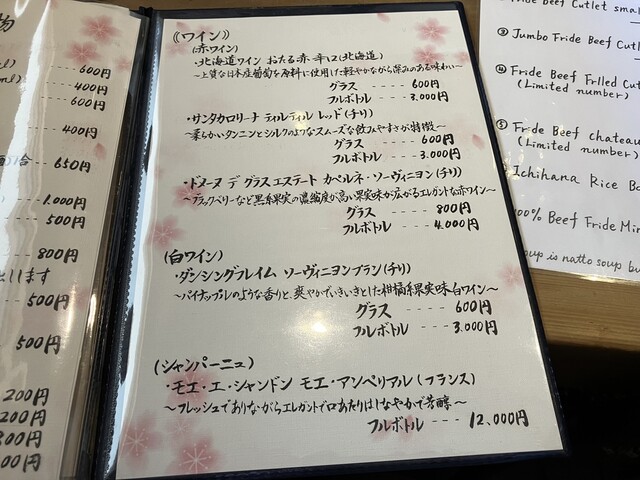 物
600円
400円
600円
400円
合- 650円
1,000円
500円
800円
します
500円
500円
200円
200円
300円
00円
《ワイン》
(赤ワイン)
・北海道ワイン おたる赤・辛口(北海道)
〜上質な日本産葡萄を原料に使用した軽やかながら深みのある味わい〜
グラス ---- 600円
フルボトル ---- 3,000円
・サンタカロリーナ ティルティル レッド(チリ)
〜柔らかいタンニンとシルクのようなスムーズな飲みやすさが特徴〜
グラス ---- 600円
フルボトル ---- 3,000円
・ドメーヌ デ グラス エステート カベルネ・ソーヴィニヨン(チリ)
〜ブラックベリーなど黒系果実の濃縮度が高い果実味が広がるエレガントな赤ワイン〜
グラス ---- 800円
フルボトル ---- 4,000円
(白ワイン)
・ダンシングフレイム ソーヴィニヨンブラン(チリ)
〜パイナップルのような香りと、爽やかでいきいきとした柑橘系果実味白ワイン〜
グラス ---- 600円
フルボトル ---- 3,000円
(シャンパーニュ)
・モエ・エ・シャンドン モエ・アンペリアル(フランス)
〜フレッシュでありながらエレガントで口あたりはしなやかで芳醇〜
フルボトル ---- 12,000円
Fride Beef Cutlet small
③ Jumbo Fride Beef Cutl
④ Fride Beef Frlled Cut
(Limited number)
⑤ Fride Beef chateau
(Limited number)
Ichihana Rice Be
100% Beef Fride Min
soup is natto soup bu